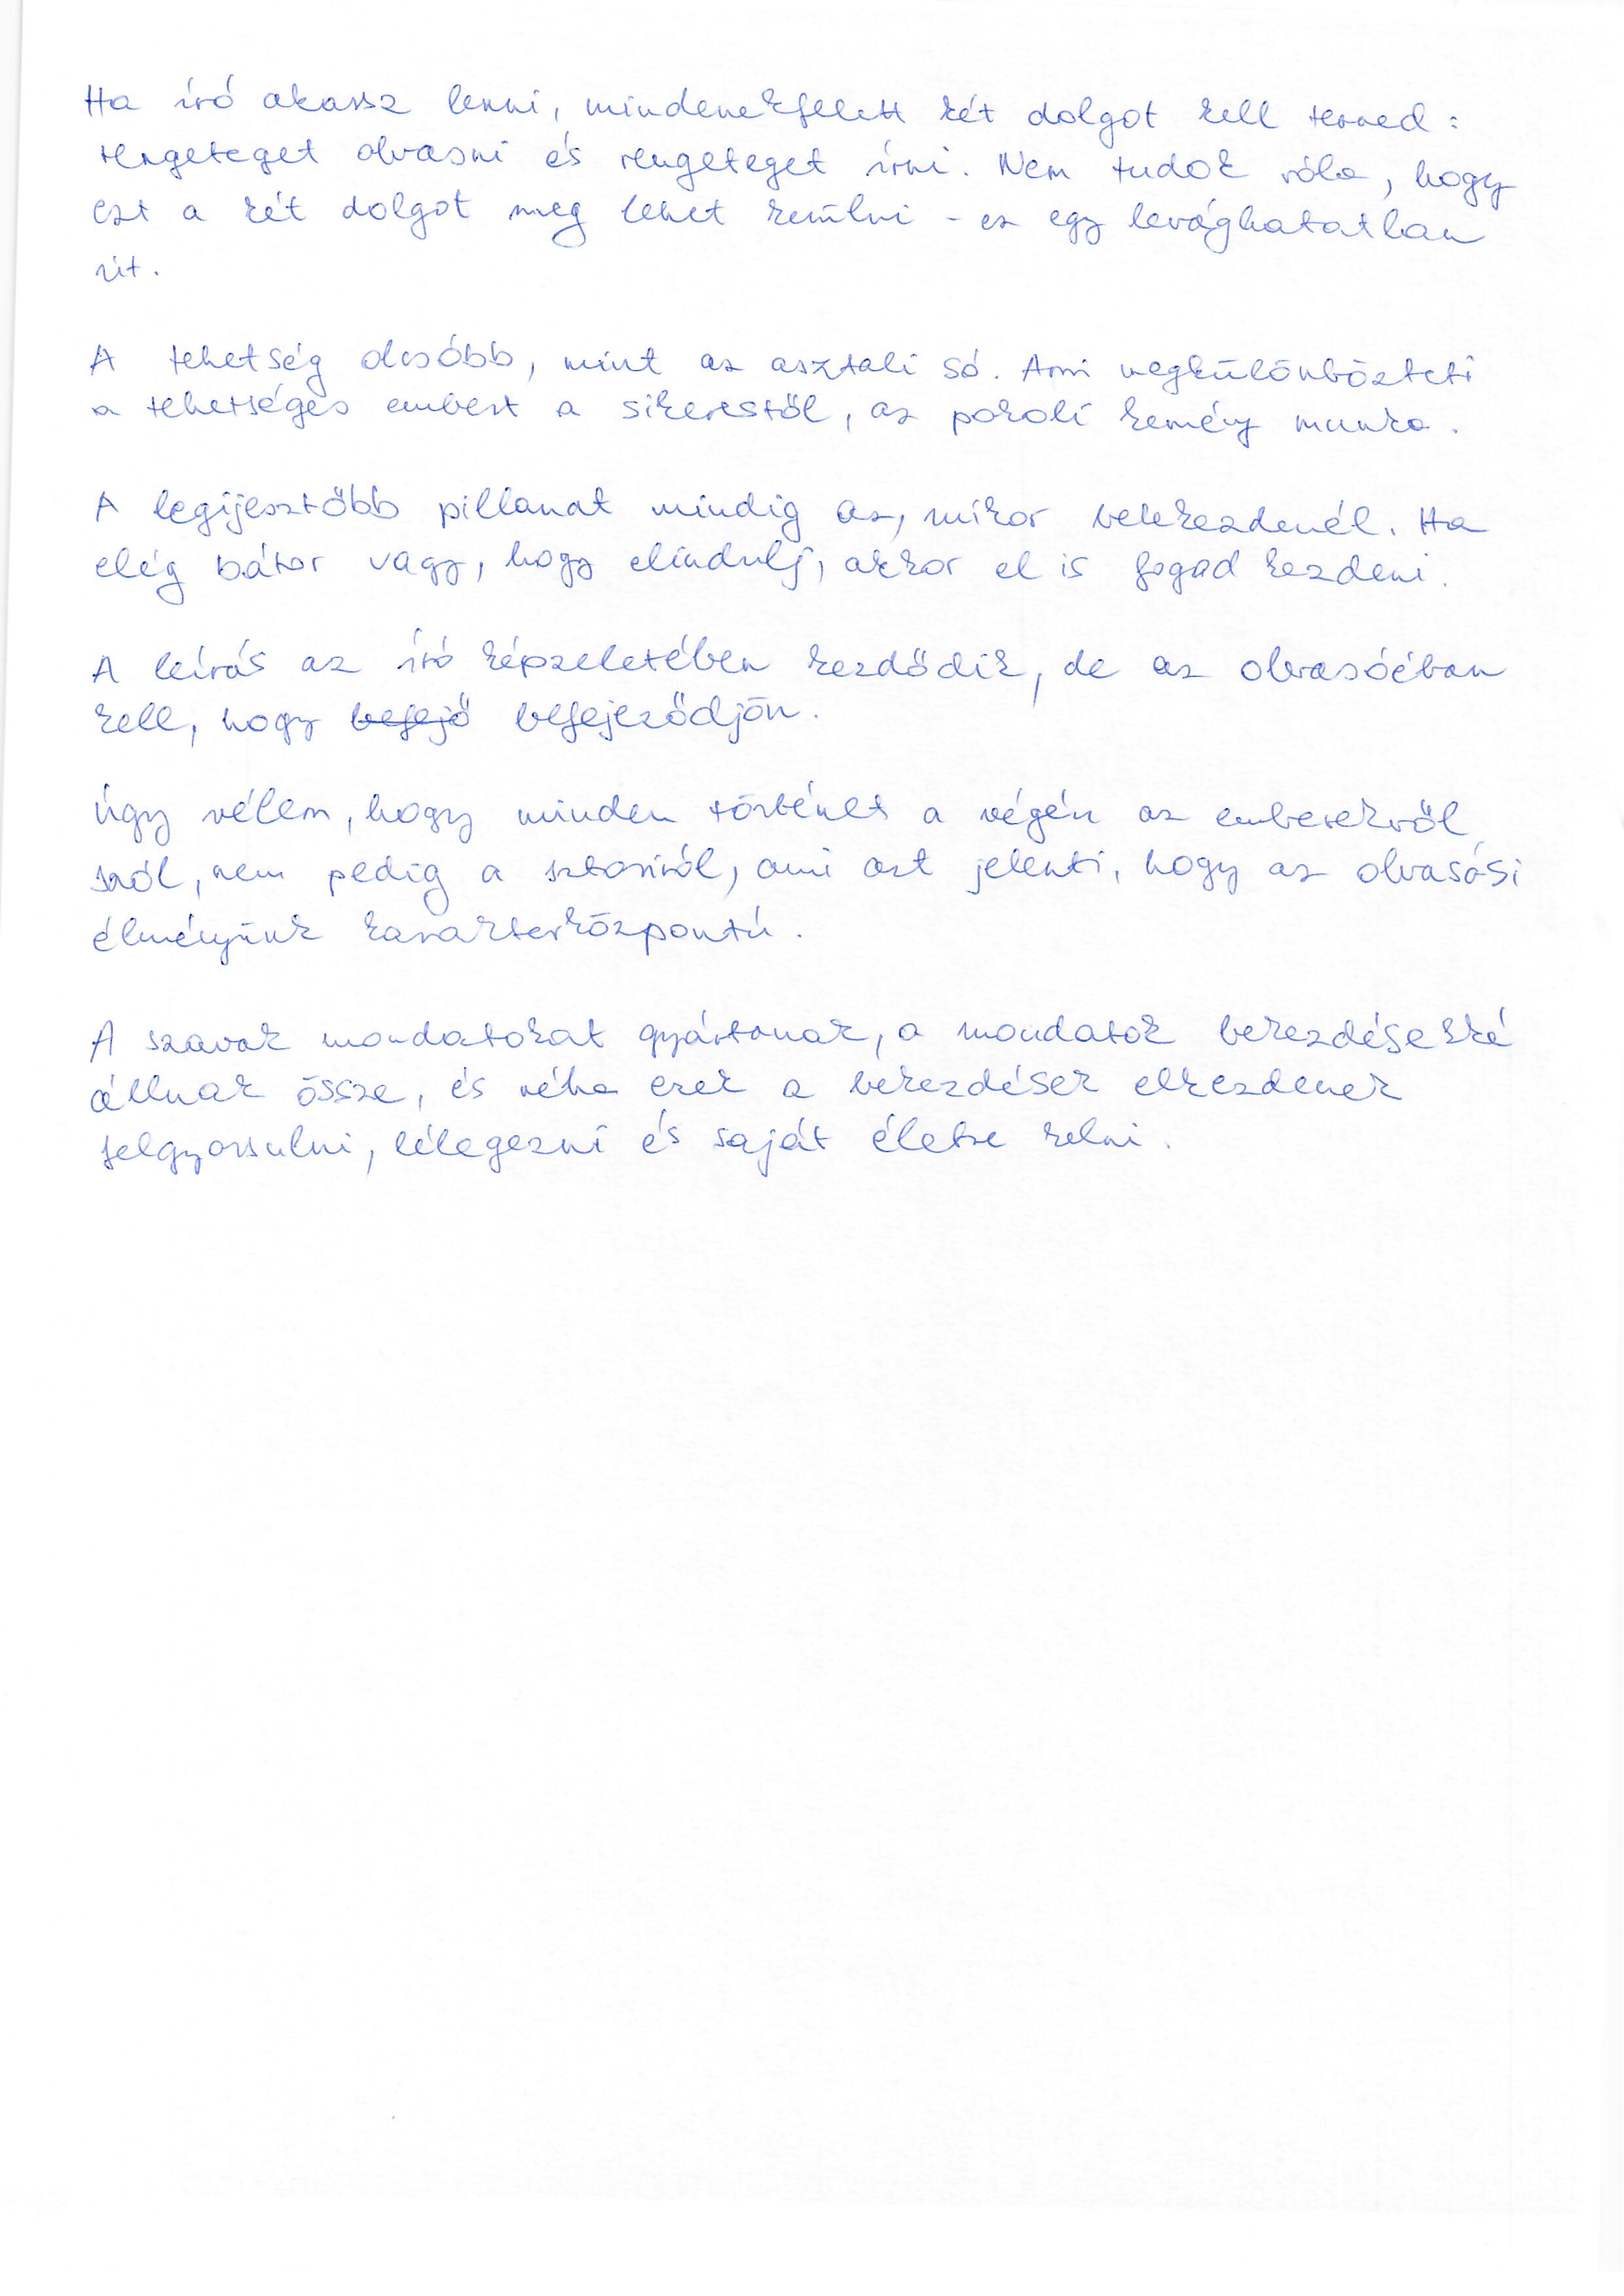 Ha író akarsz lenni, mindenekfelett két dolgot kell tenned:
rengeteget olvasni és rengeteget írni. Nem tudok róla, hogy
ezt a két dolgot meg lehet kerülni - ez egy levághatatlan
út.
A tehetség olcsóbb, mint az asztali só. Ami megkülönbözteti
a tehetséges embert a sikerestől, az pokoli kemény munka.
A legijesztőbb pillanat mindig az, mikor belekezdenél. Ha
elég bátor vagy, hogy elindulj, akkor el is fogod kezdeni.
A leírás az író képzeletében kezdődik, de az olvasóéban
kell, hogy befejő befejeződjön.
Úgy vélem, hogy minden történet a végén az emberekről
szól, nem pedig a sztoriról, ami azt jelenti, hogy az olvasási
élményünk karakterközpontú.
A szavak mondatokat gyártanak, a mondatok bekezdésekké
állnak össze, és néha ezek a bekezdések elkezdenek
felgyorsulni, lélegezni és saját életre kelni.